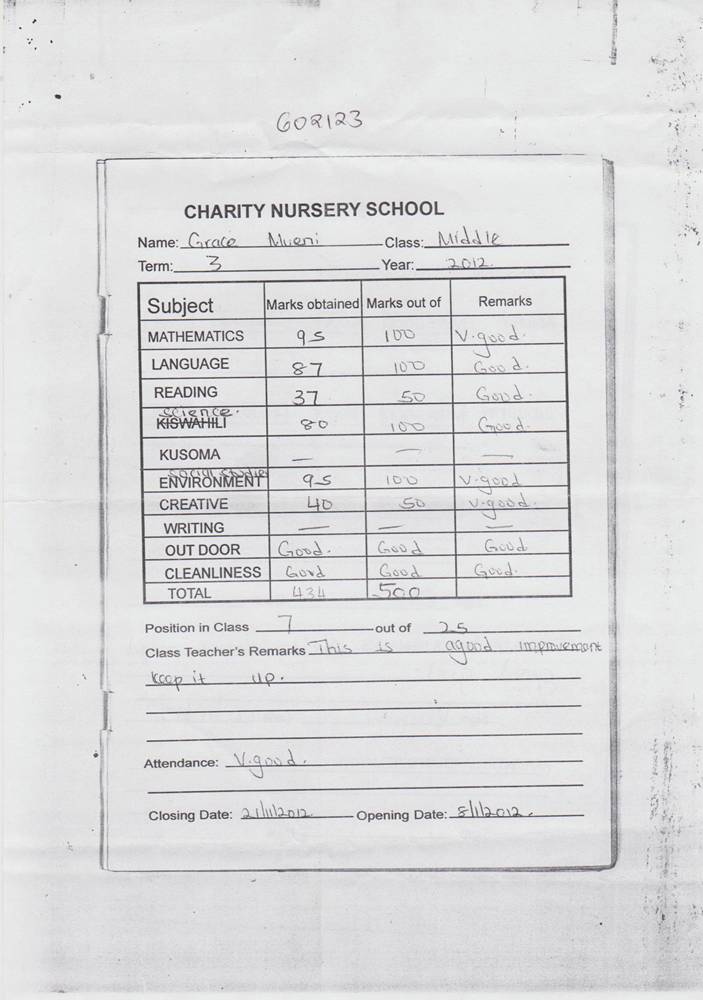 GO2123
CHARITY NURSERY SCHOOL
Name: Grace Mueni Class: Middle
Term: 3 Year: 2012.
Subject Marks obtained Marks out of Remarks
MATHEMATICS 95 100 V.good.
LANGUAGE 87 100 Good.
READING 37 50 Good.
science.
KISWAHILI 80 100 Good.
KUSOMA — — —
social studies
ENVIRONMENT 95 100 V.good
CREATIVE 40 50 V.good.
WRITING — — —
OUT DOOR Good. Good Good
CLEANLINESS Good Good Good.
TOTAL 434 500
Position in Class 7 out of 25
Class Teacher's Remarks This is agood improvement
keep it up.
Attendance: V.good.
Closing Date: 21/11/2012 Opening Date: 8/1/2012.